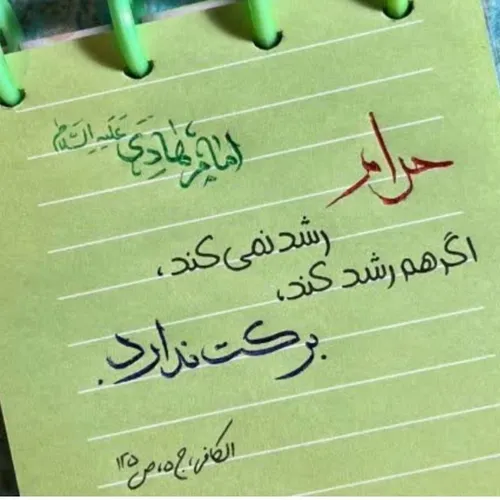 امام هادی عَلَیهِ السَّلام
حرام
رشد نمی کند،
اگر هم رشد کند،
برکت ندارد.
الکافی، ج ۵، ص ۱۲۵